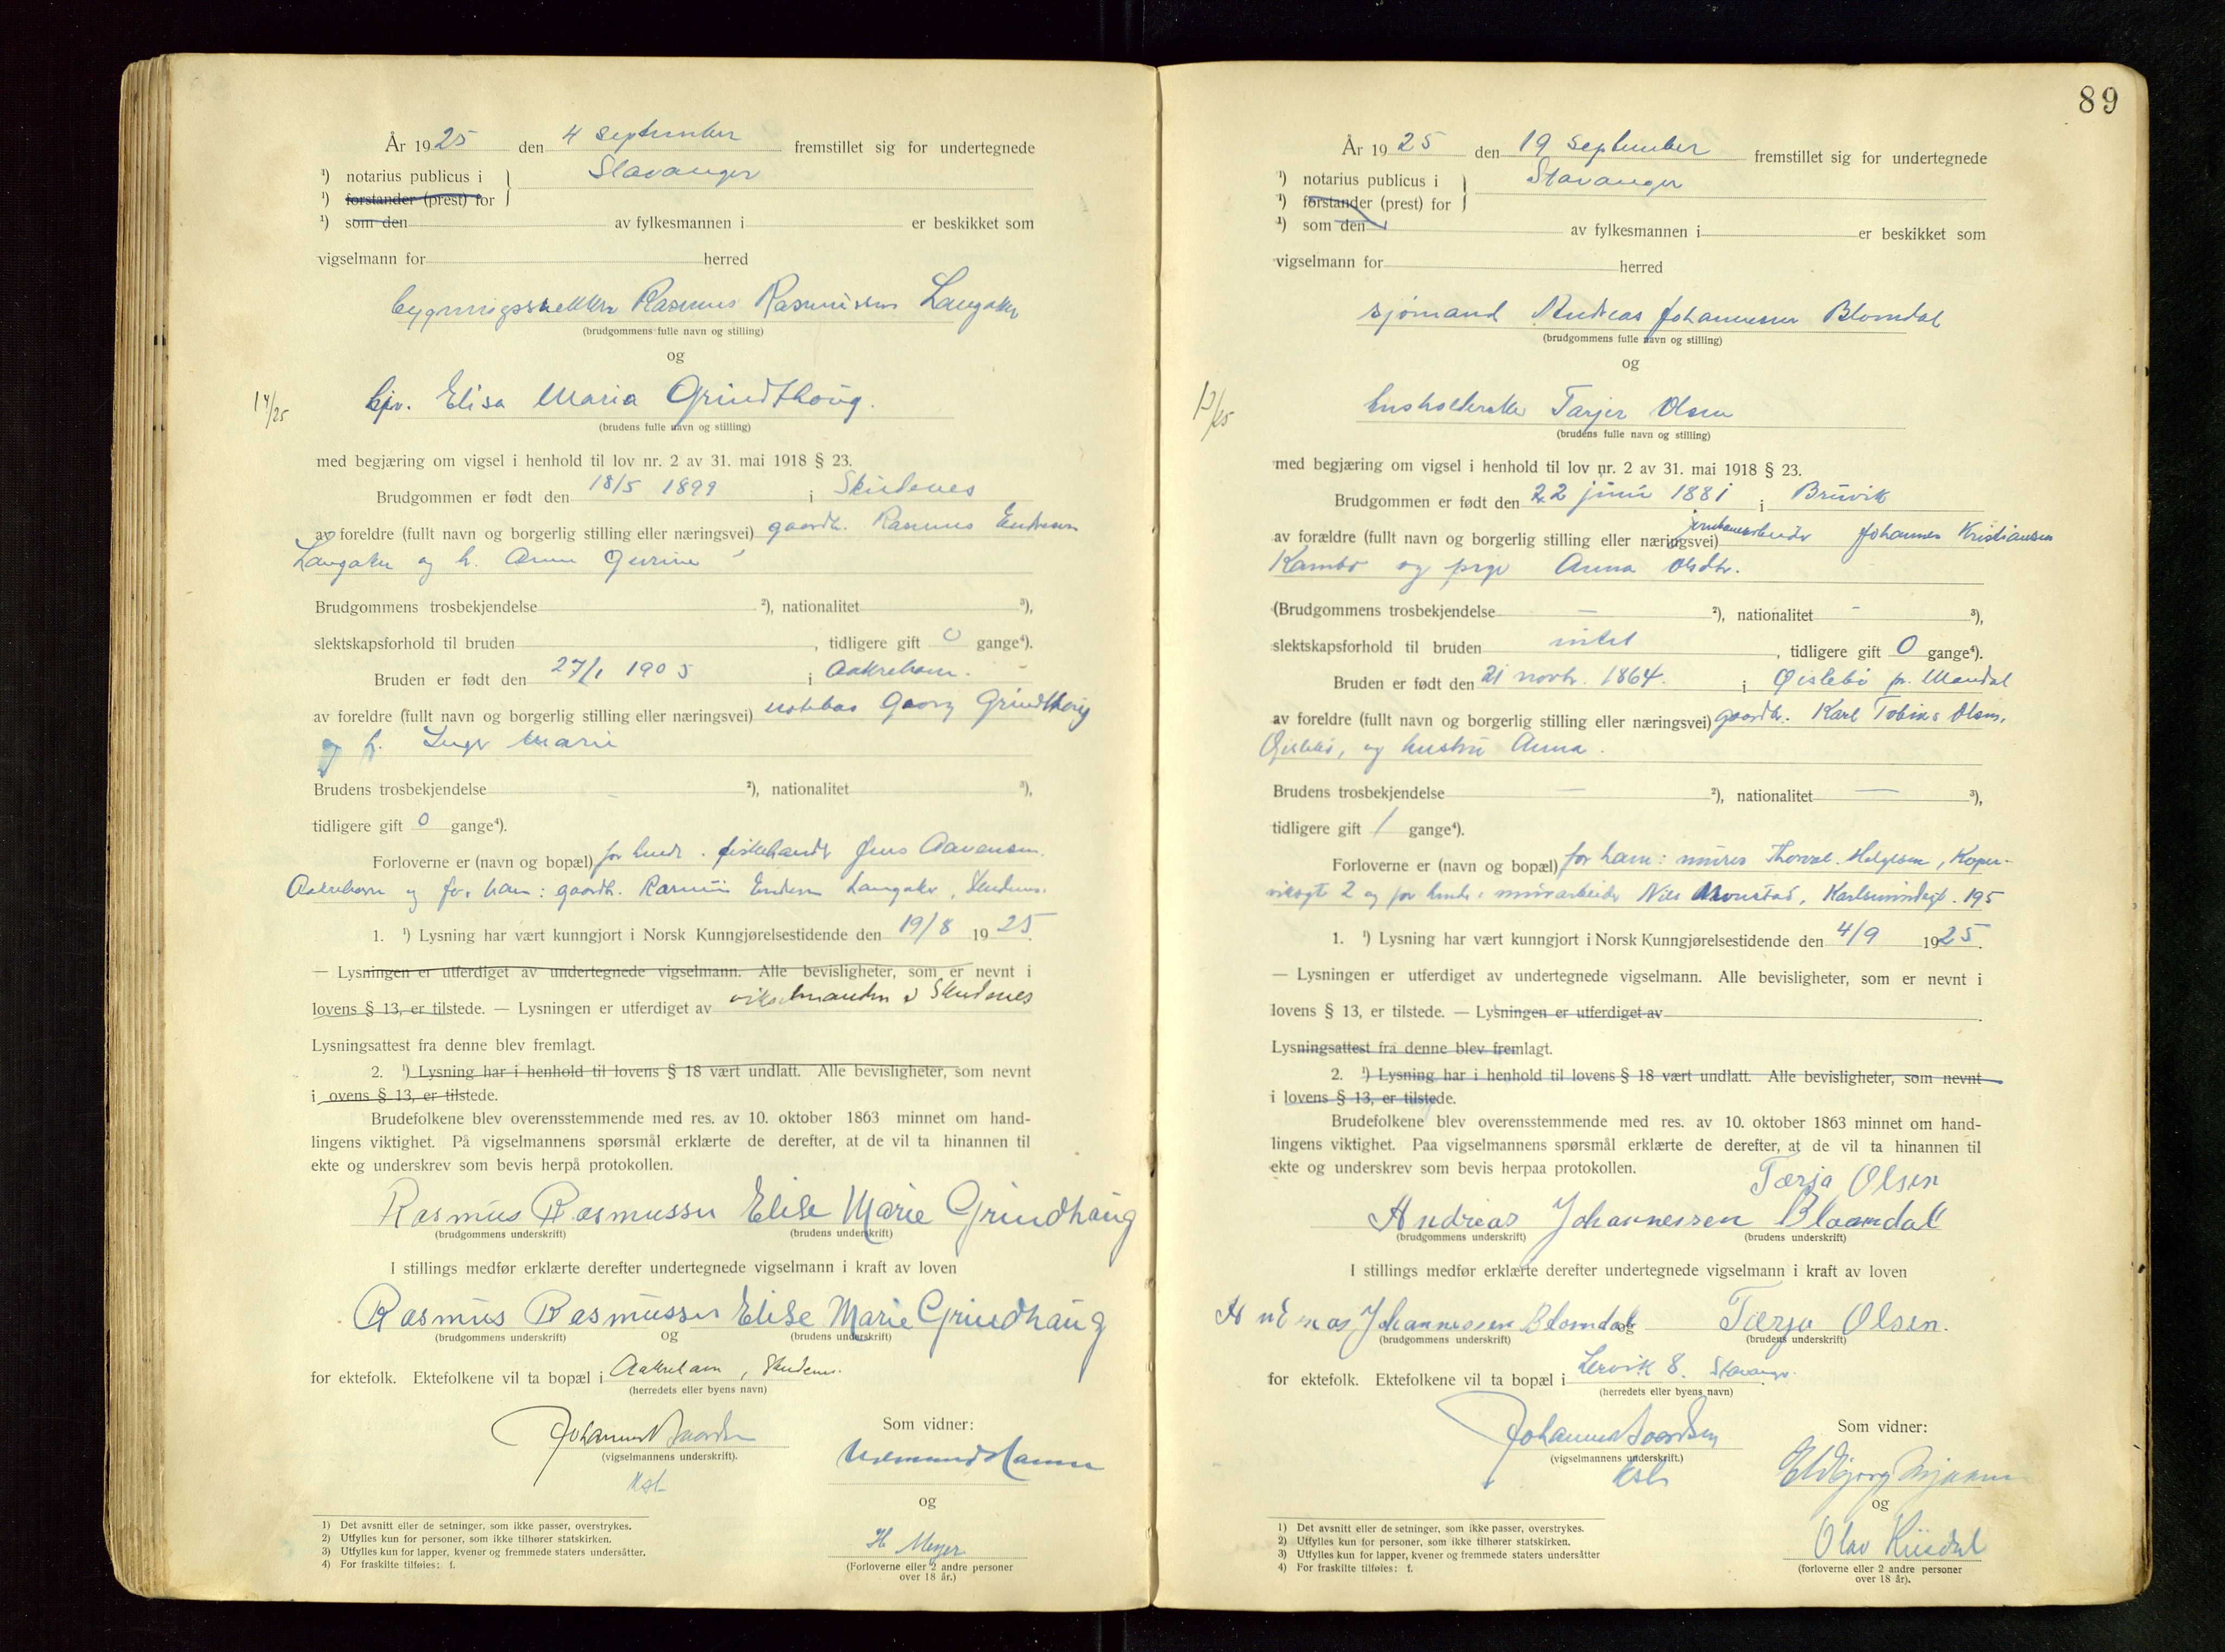 År 1925 den 4 september fremstillet sig for undertegnede
¹) notarius publicus i } Stavanger
¹) forstander (prest) for
¹) som den av fylkesmannen i er beskikket som
vigselmann for herred
bygningssnekker Rasmus Rasmussen Langaker
(brudgommens fulle navn og stilling)
og
14/25
Elisa Maria Grindthoug.
(brudens fulle navn og stilling)
med begjæring om vigsel i henhold til lov nr. 2 av 31. mai 1918 § 23.
Brudgommen er født den 18/5 1899 i Skudenes
av foreldre (fullt navn og borgerlig stilling eller næringsvei) gaardbr. Rasmus Endresen
Langaker og h. Anne Gurine
Brudgommens trosbekjendelse ²), nationalitet ³),
slektskapsforhold til bruden , tidligere gift 0 gange⁴).
Bruden er født den 27/1 1905 i Aakrehavn.
av foreldre (fullt navn og borgerlig stilling eller næringsvei) notebas Georg Grindthoug
og h. Inger Marie
Brudens trosbekjendelse ²), nationalitet ³),
tidligere gift 0 gange⁴).
Forloverne er (navn og bopæl) for hende. fiskehandler Jens Aavensen.
Aakrehavn og for ham: gaardbr. Rasmus Endresen Langaker, Skudenes.
1. ¹) Lysning har vært kunngjort i Norsk Kunngjørelsestidende den 19/8 1925.
— Lysningen er utferdiget av undertegnede vigselmann. Alle bevisligheter, som er nevnt i
lovens § 13, er tilstede. — Lysningen er utferdiget av vikselmanden i Skudenes
Lysningsattest fra denne blev fremlagt.
2. ¹) Lysning har i henhold til lovens § 18 vært undlatt. Alle bevisligheter, som nevnt
i ovens § 13, er tilstede.
Brudefolkene blev overensstemmende med res. av 10. oktober 1863 minnet om hand-
lingens viktighet. På vigselmannens spørsmål erklærte de derefter, at de vil ta hinannen til
ekte og underskrev som bevis herpå protokollen.
Rasmus Rasmussen Elise Marie Grindhaug
(brudgommens underskrift) (brudens underskrift)
I stillings medfør erklærte derefter undertegnede vigselmann i kraft av loven
Rasmus Rasmussen Elise Marie Grindhaug
(brudgommens underskrift) og (brudens underskrift)
for ektefolk. Ektefolkene vil ta bopæl i Aakrehavn, Skudenes.
(herredets eller byens navn)
Som vidner:
(vigselmannens underskrift).
og
H Meyer
(Forloverne eller 2 andre personer
over 18 år.)
1) Det avsnitt eller de setninger, som ikke passer, overstrykes.
2) Utfylles kun for personer, som ikke tilhører statskirken.
3) Utfylles kun for lapper, kvener og fremmede staters undersåtter.
4) For fraskilte tilføies: f.
89
År 1925 den 19 september fremstillet sig for undertegnede
¹) notarius publicus i } Stavanger
¹) forstander (prest) for
¹) som den av fylkesmannen i er beskikket som
vigselmann for herred
sjømand Andreas Johannessen Blomdal
(brudgommens fulle navn og stilling)
og
husholderske Tarjer Olsen
(brudens fulle navn og stilling)
med begjæring om vigsel i henhold til lov nr. 2 av 31. mai 1918 § 23.
Brudgommen er født den 22 juni 1881 i Bruvik
av forældre (fullt navn og borgerlig stilling eller næringsvei) jernbanearbeider Johannes Kristiansen
Kambo og pige Anna Olsdtr.
(Brudgommens trosbekjendelse — ²), nationalitet - ³),
slektskapsforhold til bruden intet , tidligere gift 0 gange⁴).
Bruden er født den 21 novbr. 1864. i Øislebø pr. Mandal
av foreldre (fullt navn og borgerlig stilling eller næringsvei) gaardbr. Karl Tobias Olsen,
Øislebø, og hustru Anna.
Brudens trosbekjendelse — ²), nationalitet — ³),
tidligere gift 1 gange⁴).
Forloverne er (navn og bopæl) for ham: murer Thorval Helgesen, Koper-
vikgt 2 og for hende: murarbeider Nils Movstad, Karlsmindegt. 195
1. ¹) Lysning har vært kunngjort i Norsk Kunngjørelsestidende den 4/9 1925.
— Lysningen er utferdiget av undertegnede vigselmann. Alle bevisligheter, som er nevnt i
lovens § 13, er tilstede. — Lysningen er utferdiget av
Lysningsattest fra denne blev fremlagt.
2. ¹) Lysning har i henhold til lovens § 18 vært undlatt. Alle bevisligheter, som nevnt
i lovens § 13, er tilstede.
Brudefolkene blev overensstemmende med res. av 10. oktober 1863 minnet om hand-
lingens viktighet. Paa vigselmannens spørsmål erklærte de derefter, at de vil ta hinannen til
ekte og underskrev som bevis herpaa protokollen.
Tærja Olsen
Andreas Johannessen Bloamdal
(brudgommens underskrift) (brudens underskrift)
I stillings medfør erklærte derefter undertegnede vigselmann i kraft av loven
Andreas Johannessen Blomdal og Tærja Olsen.
(brudgommens underskrift) (brudens underskrift)
for ektefolk. Ektefolkene vil ta bopæl i Lervik 8. Stavanger.
(herredets eller byens navn)
Som vidner:
(vigselmannens underskrift.)
og
Olav
(forloverne eller 2 andre personer
over 18 år).
1) Det avsnitt eller de setninger, som ikke passer, overstrykes.
2) Utfylles kun for personer, som ikke tilhører statskirken.
3) Utfylles kun for lapper, kvener og fremmede staters undersåtter
4) For fraskilte tilføies: f.